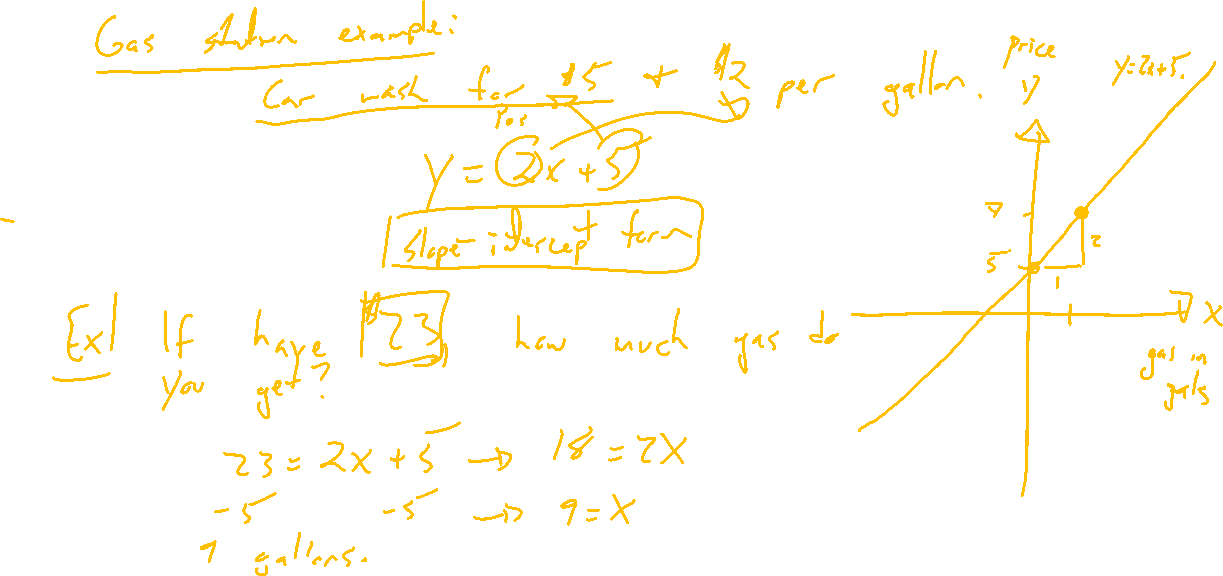 Gas station example:
Car wash for $5 + $2 per gallon.
Pos
y = 2x + 5
slope-intercept form
Ex) If have $23, how much gas do
you get?
23 = 2x + 5 → 18 = 2x
-5 -5 → 9 = x
9 gallons.
price
y
y=2x+5
7
5
2
1
x
gas in
gals